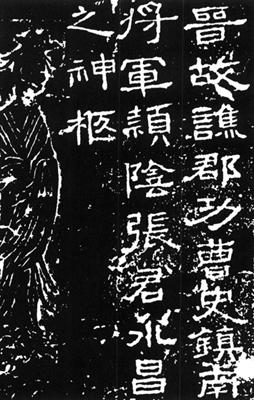 晉故譙郡功曹史鎮南
將軍潁陰張君永昌
之神柩